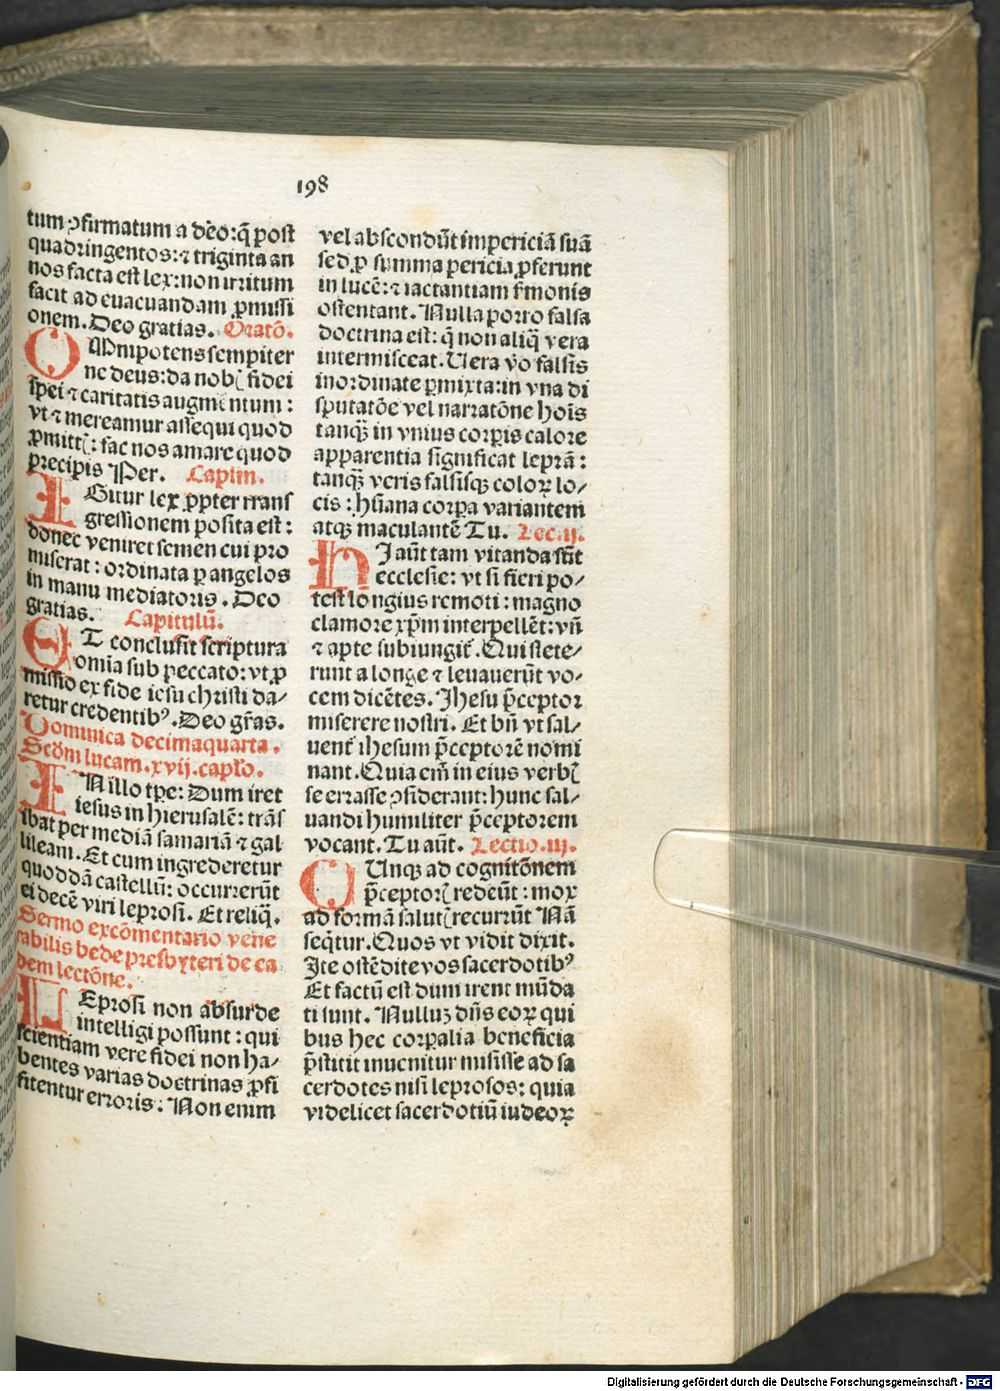 198
tum ꝯfirmatum a deo: q̃ post
quadringentos: ⁊ triginta an
nos facta est lex: non irritum
facit ad euacuandam ꝓmissi
onem. Deo gratias. Oratõ.
OMnipotens sempiter
ne deus: da nob̃ fidei
spei ⁊ caritatis augmentum:
vt ⁊ mereamur assequi quod
ꝓmitt̃: fac nos amare quod
precipis Per. Caplm.
IGitur lex ꝓpter trans
gressionem posita est:
donec veniret semen cui pro
miserat: ordinata ꝑ angelos
in manu mediatoris. Deo
gratias. Capitulũ.
ET conclusit scriptura
omĩa sub peccato: vt ꝓ
missio ex fide iesu christi da/
retur credentibꝰ. Deo gr̃as.
Dominica decimaquarta.
Scd̃m lucam. xvij. capło.
IN illo tꝑe: Dum iret
iesus in hierusalẽ: trãs
ibat per mediã samariã ⁊ gal
lileam. Et cum ingrederetur
quoddã castellũ: occurrerũt
ei decẽ viri leprosi. Et reliq̃.
Sermo ex cõmentario vene
rabilis bede presbyteri de ea
dem lectõne.
LEprosi non absurde
intelligi possunt: qui
scientiam vere fidei non ha/
bentes varias doctrinas ꝓfi
tentur erroris: Non enim
vel abscondũt impericiã suã
sed ꝓ summa pericia ꝓferunt
in lucẽ: ⁊ iactantiam s̃monis
ostentant. Nulla porro falsa
doctrina est: q̃ non aliq̃ vera
intermisceat. Uera ṽo falsis
inordinate ꝑmixta: in vna di
sputatõe vel narratõne hoĩs
tanqꝫ in vnius corꝑis calore
apparentia significat leprã:
tanqꝫ veris falsisqꝫ coloꝝ lo/
cis: hũana corꝑa variantem
atqꝫ maculantẽ Tu. Lec. ij.
HI aũt tam vitanda sũt
ecclesie: vt si fieri po/
test longius remoti: magno
clamore xp̃m interpellẽt: vñ
⁊ apte subiungit̃. Qui stete/
runt a longe ⁊ leuauerũt vo/
cem dicẽtes. Jhesu p̃ceptor
miserere nostri. Et bñ vt sal/
uent̃ ihesum p̃ceptorẽ nomi
nant. Quia em̃ in eius verb̃
se errasse ꝯsiderant: hunc sal/
uandi humiliter p̃ceptorem
vocant. Tu aũt. Lectio. iij.
CUnqꝫ ad cognitõnem
p̃ceptor̃ redeũt: mox
ad formã salut̃ recurrũt Nã
seq̃tur. Quos vt vidit dixit.
Ite ostẽdite vos sacerdotibꝰ
Et factũ est dum irent mũda
ti sunt. Nulluꝫ dñs eoꝝ qui
bus hec corꝑalia beneficia
p̃stitit inuenitur misisse ad sa
cerdotes nisi leprosos: quia
videlicet sacerdotiũ iudeoꝝ
Digitalisierung gefördert durch die Deutsche Forschungsgemeinschaft - DFG